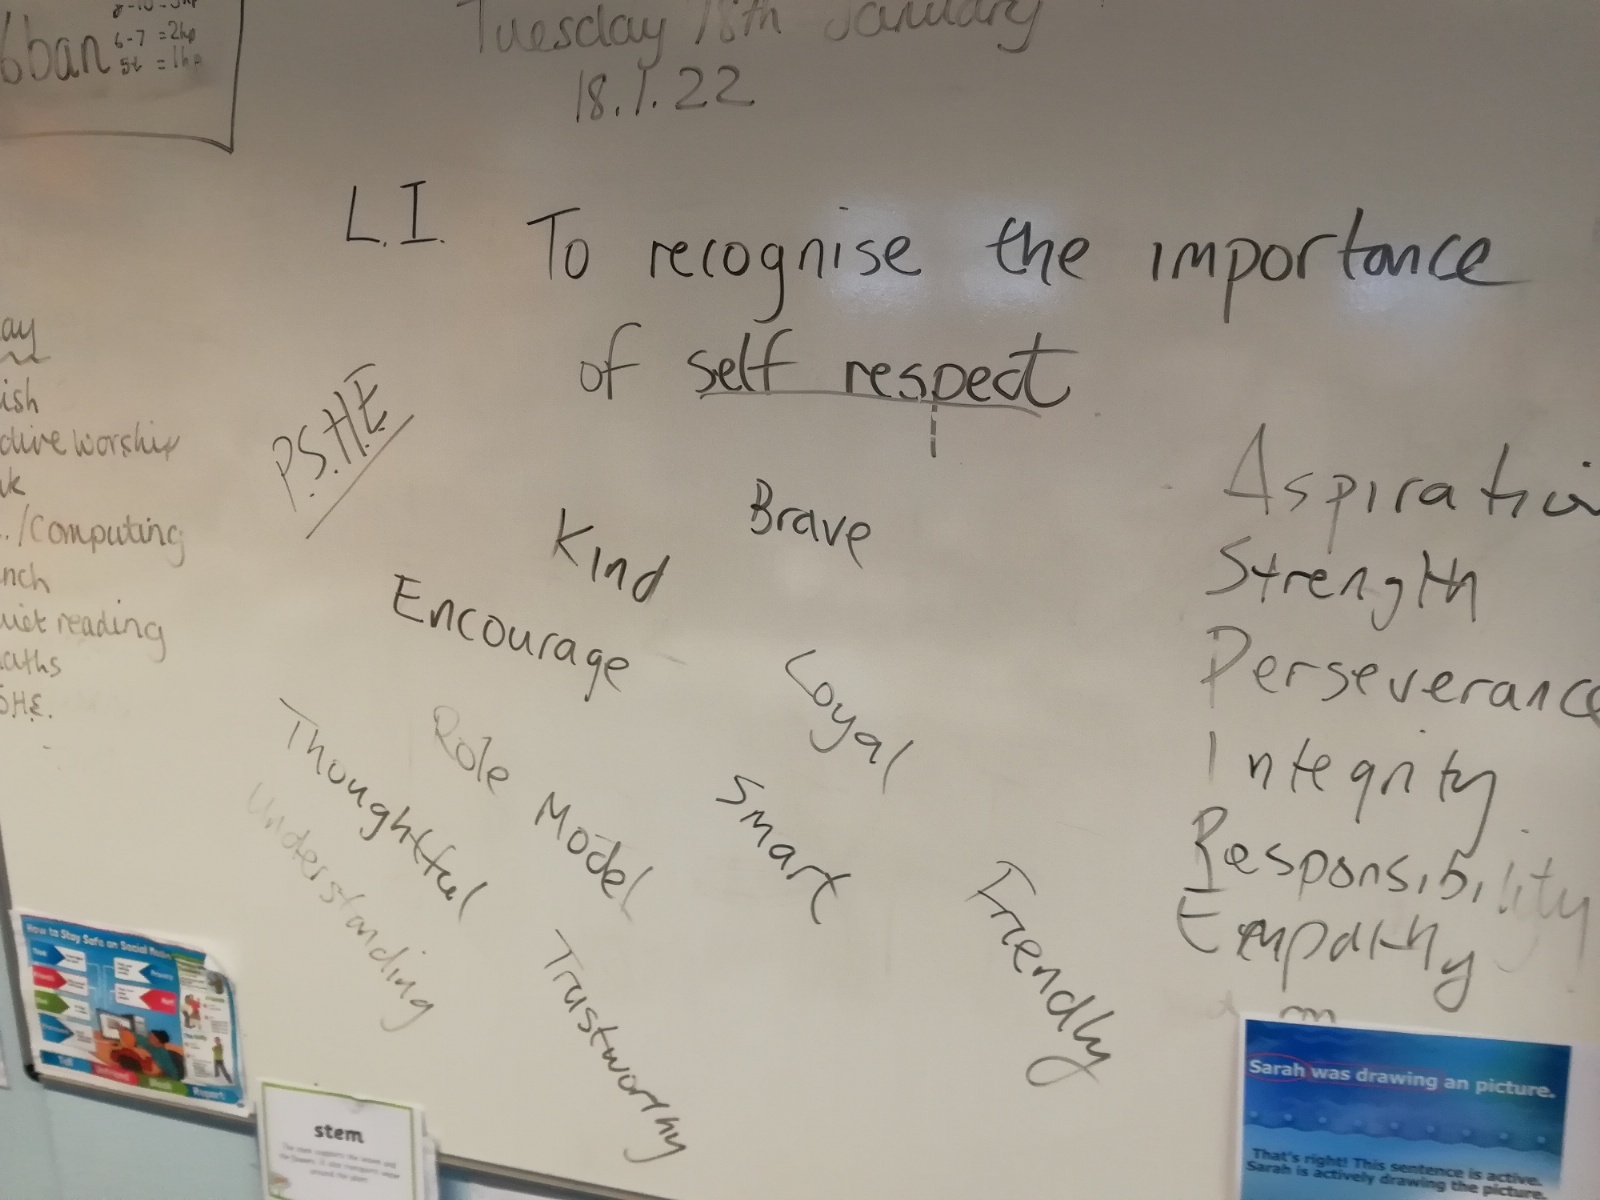 6ban
6-7 = 2hp
5t = 1hp
Tuesday 18th January
18.1.22
L.I. To recognise the importance
of self respect
P.S.H.E
ay
ish
ctive worship
k
../Computing
nch
uiet reading
aths
SHE.
Brave
Kind
Encourage
Loyal
Role Model
Thoughtful
Smart
Understanding
Trustworthy
Friendly
Aspiratio
Strength
Perseverance
Integrity
Responsibility
Empathy
How to Stay Safe on Social Media
Tell
Report
stem
Sarah was drawing an picture.
That's right! This sentence is active.
Sarah is actively drawing the picture.